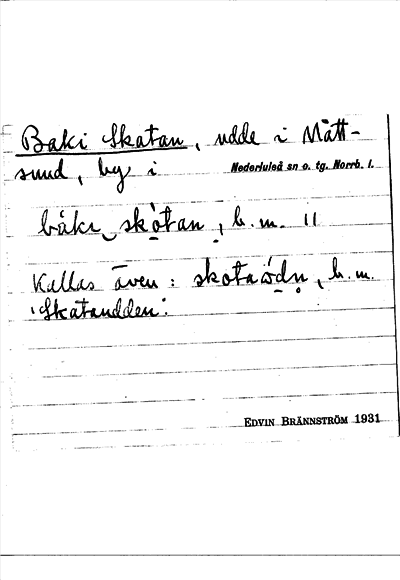 Baki Skatan, udde i Mått-
sund, by i Nederluleå sn o. tg. Norrb. l.
båkɩ skòtan, b.m. 11
Kallas även: skotaödn, b.m.
'Skatandden'.
EDVIN BRÄNNSTRÖM 1931